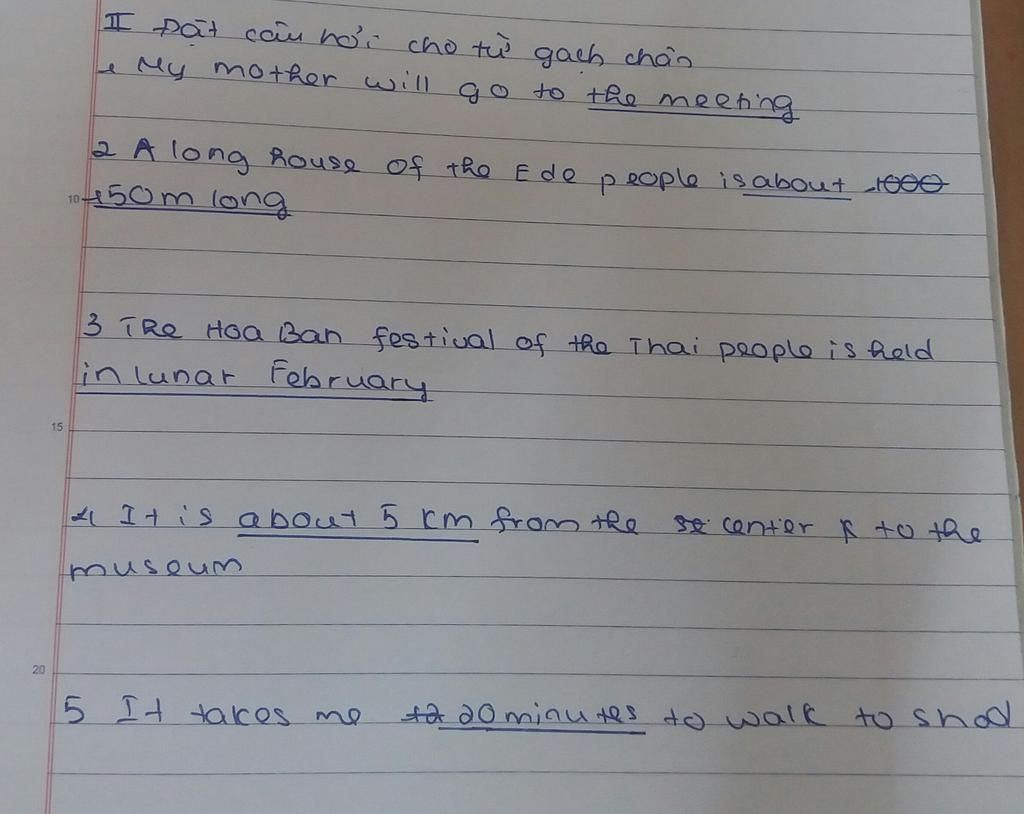 II Đặt câu hỏi cho từ gạch chân
1 My mother will go to the meeting
2 A long house of the Ede people is about
10 150m long
3 The Hoa Ban festival of the Thai people is held
in lunar February
15
4 It is about 5 km from the center to the
museum
20
5 It takes me 20 minutes to walk to